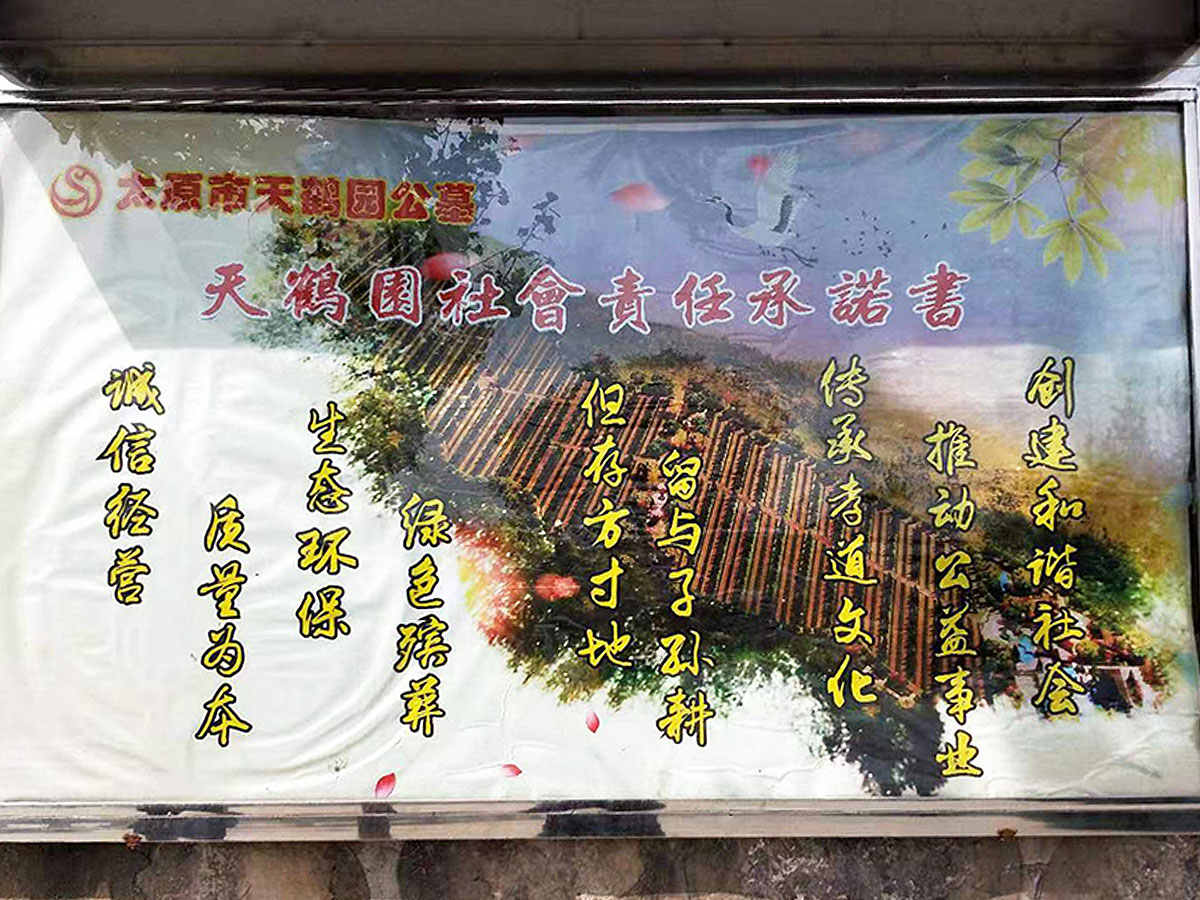 太原市天鹤园公墓
天鶴園社會責任承諾書
诚信经营
质量为本
生态环保
绿色殡葬
但存方寸地
留与子孙耕
传承孝道文化
推动公益事业
创建和谐社会